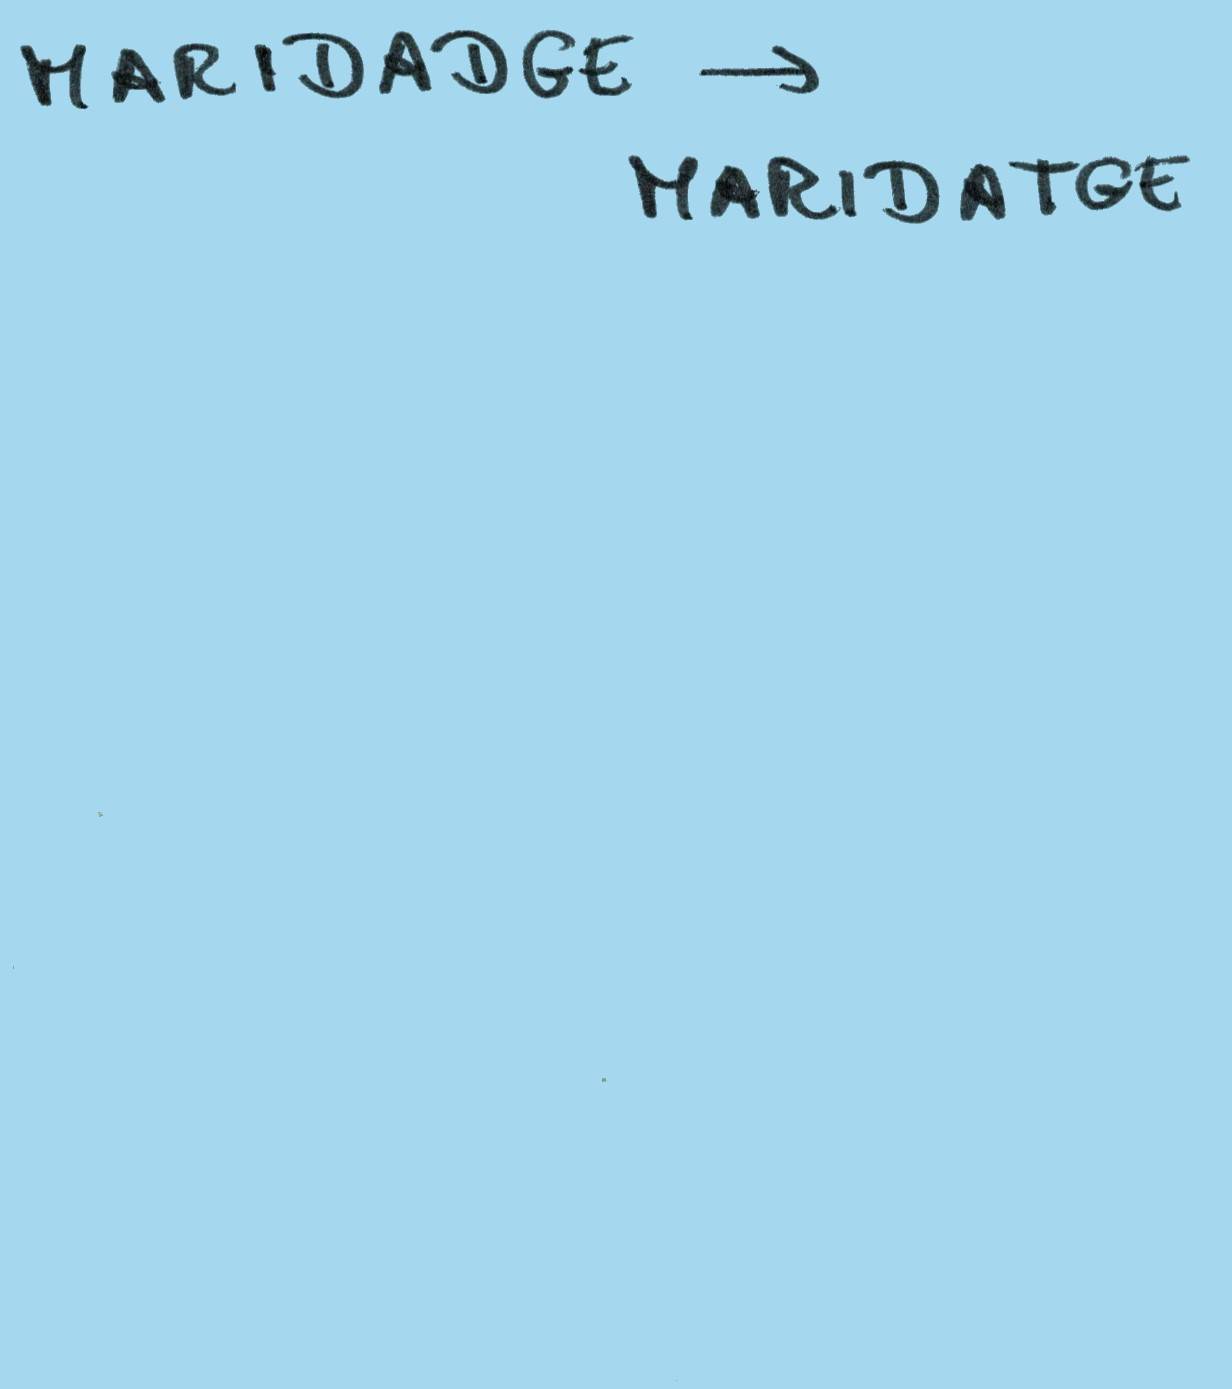 MARIDADGE →
MARIDATGE